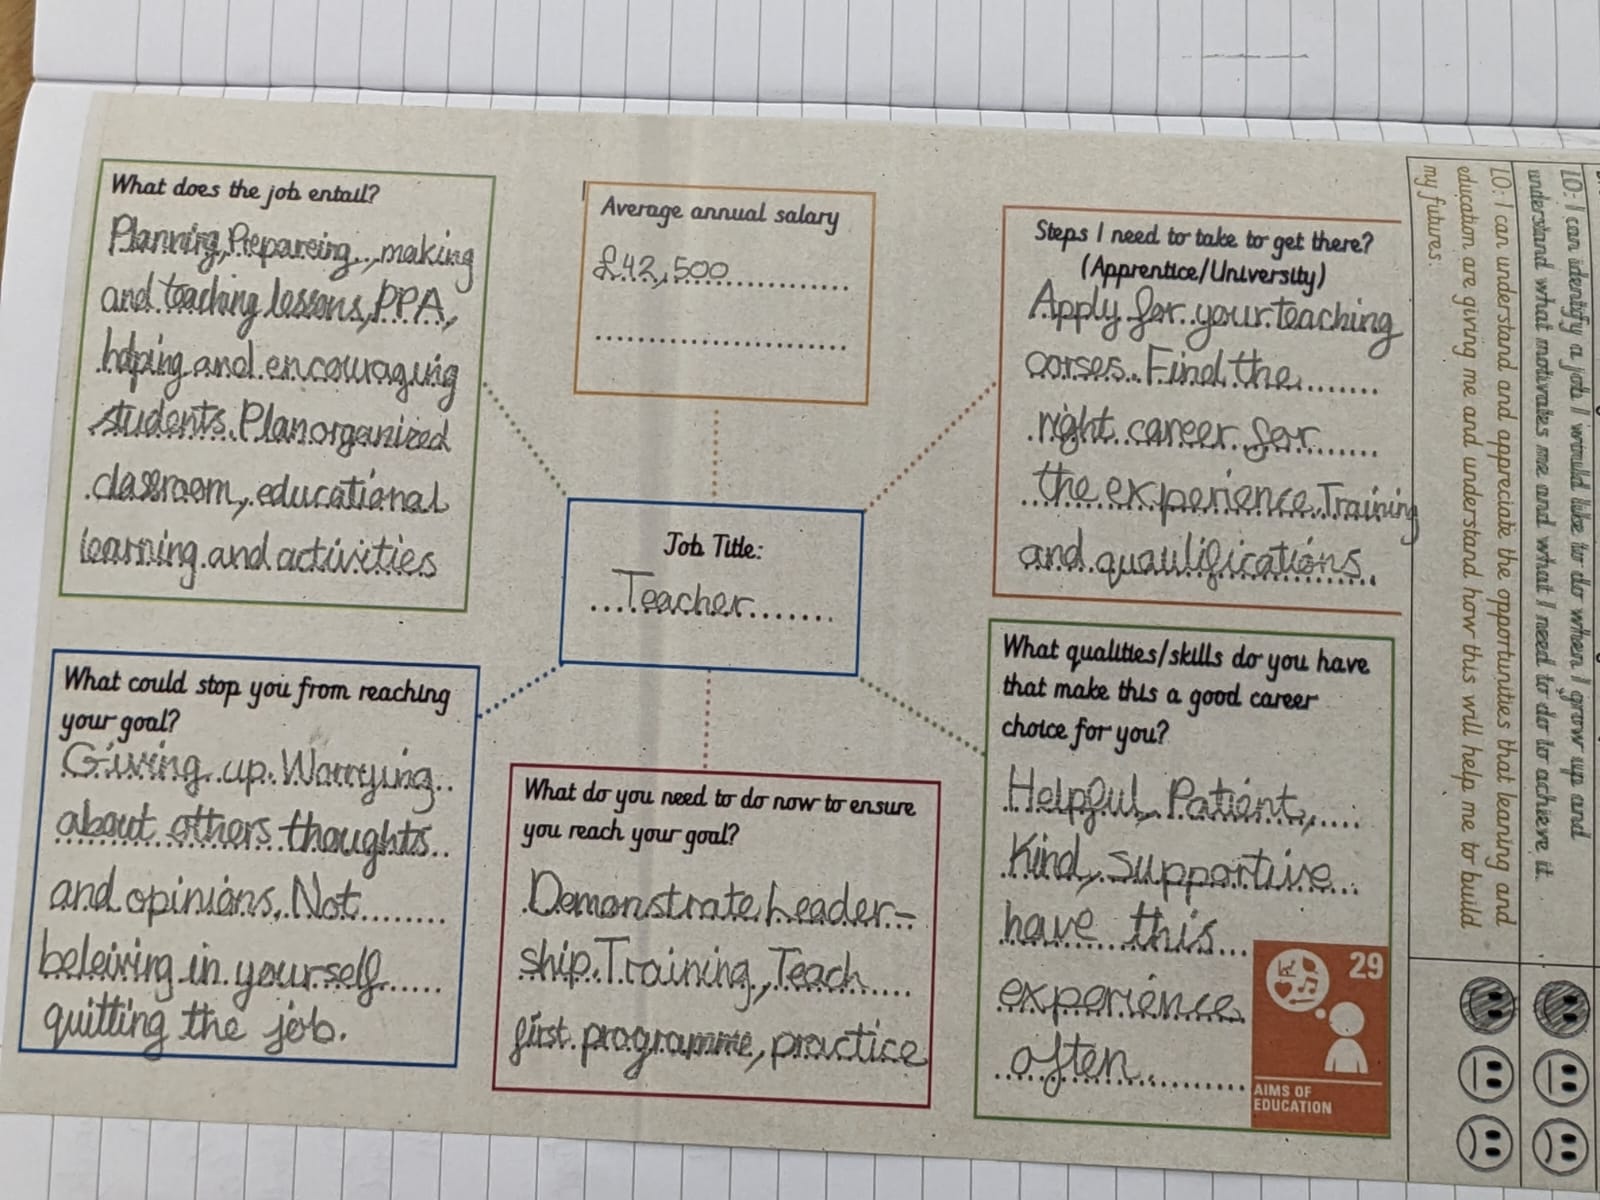 What does the job entail?
Planning, Prepareing, making
and teaching lessons, PPA,
helping and encouraging
students. Plan organized
classroom, educational
learning and activities
Average annual salary
£42,500
Steps I need to take to get there?
(Apprentice/University)
Apply for your teaching
corses. Find the
right career for
the experience. Training
and quaulifications.
Job Title:
Teacher
What could stop you from reaching
your goal?
Giving up. Worrying
about others thoughts
and opinions. Not
beleiving in yourself
quitting the job.
What do you need to do now to ensure
you reach your goal?
Demonstrate, Leader-
ship. Training, Teach
first programme, practice
What qualities/skills do you have
that make this a good career
choice for you?
Helpful, Patient,
Kind, supportive
have this
experience
often.
29
AIMS OF
EDUCATION
LO: I can identify a job I would like to do when I grow up and
understand what motivates me and what I need to do to achieve it.
LO: I can understand and appreciate the opportunities that leaning and
education are giving me and understand how this will help me to build
my futures.